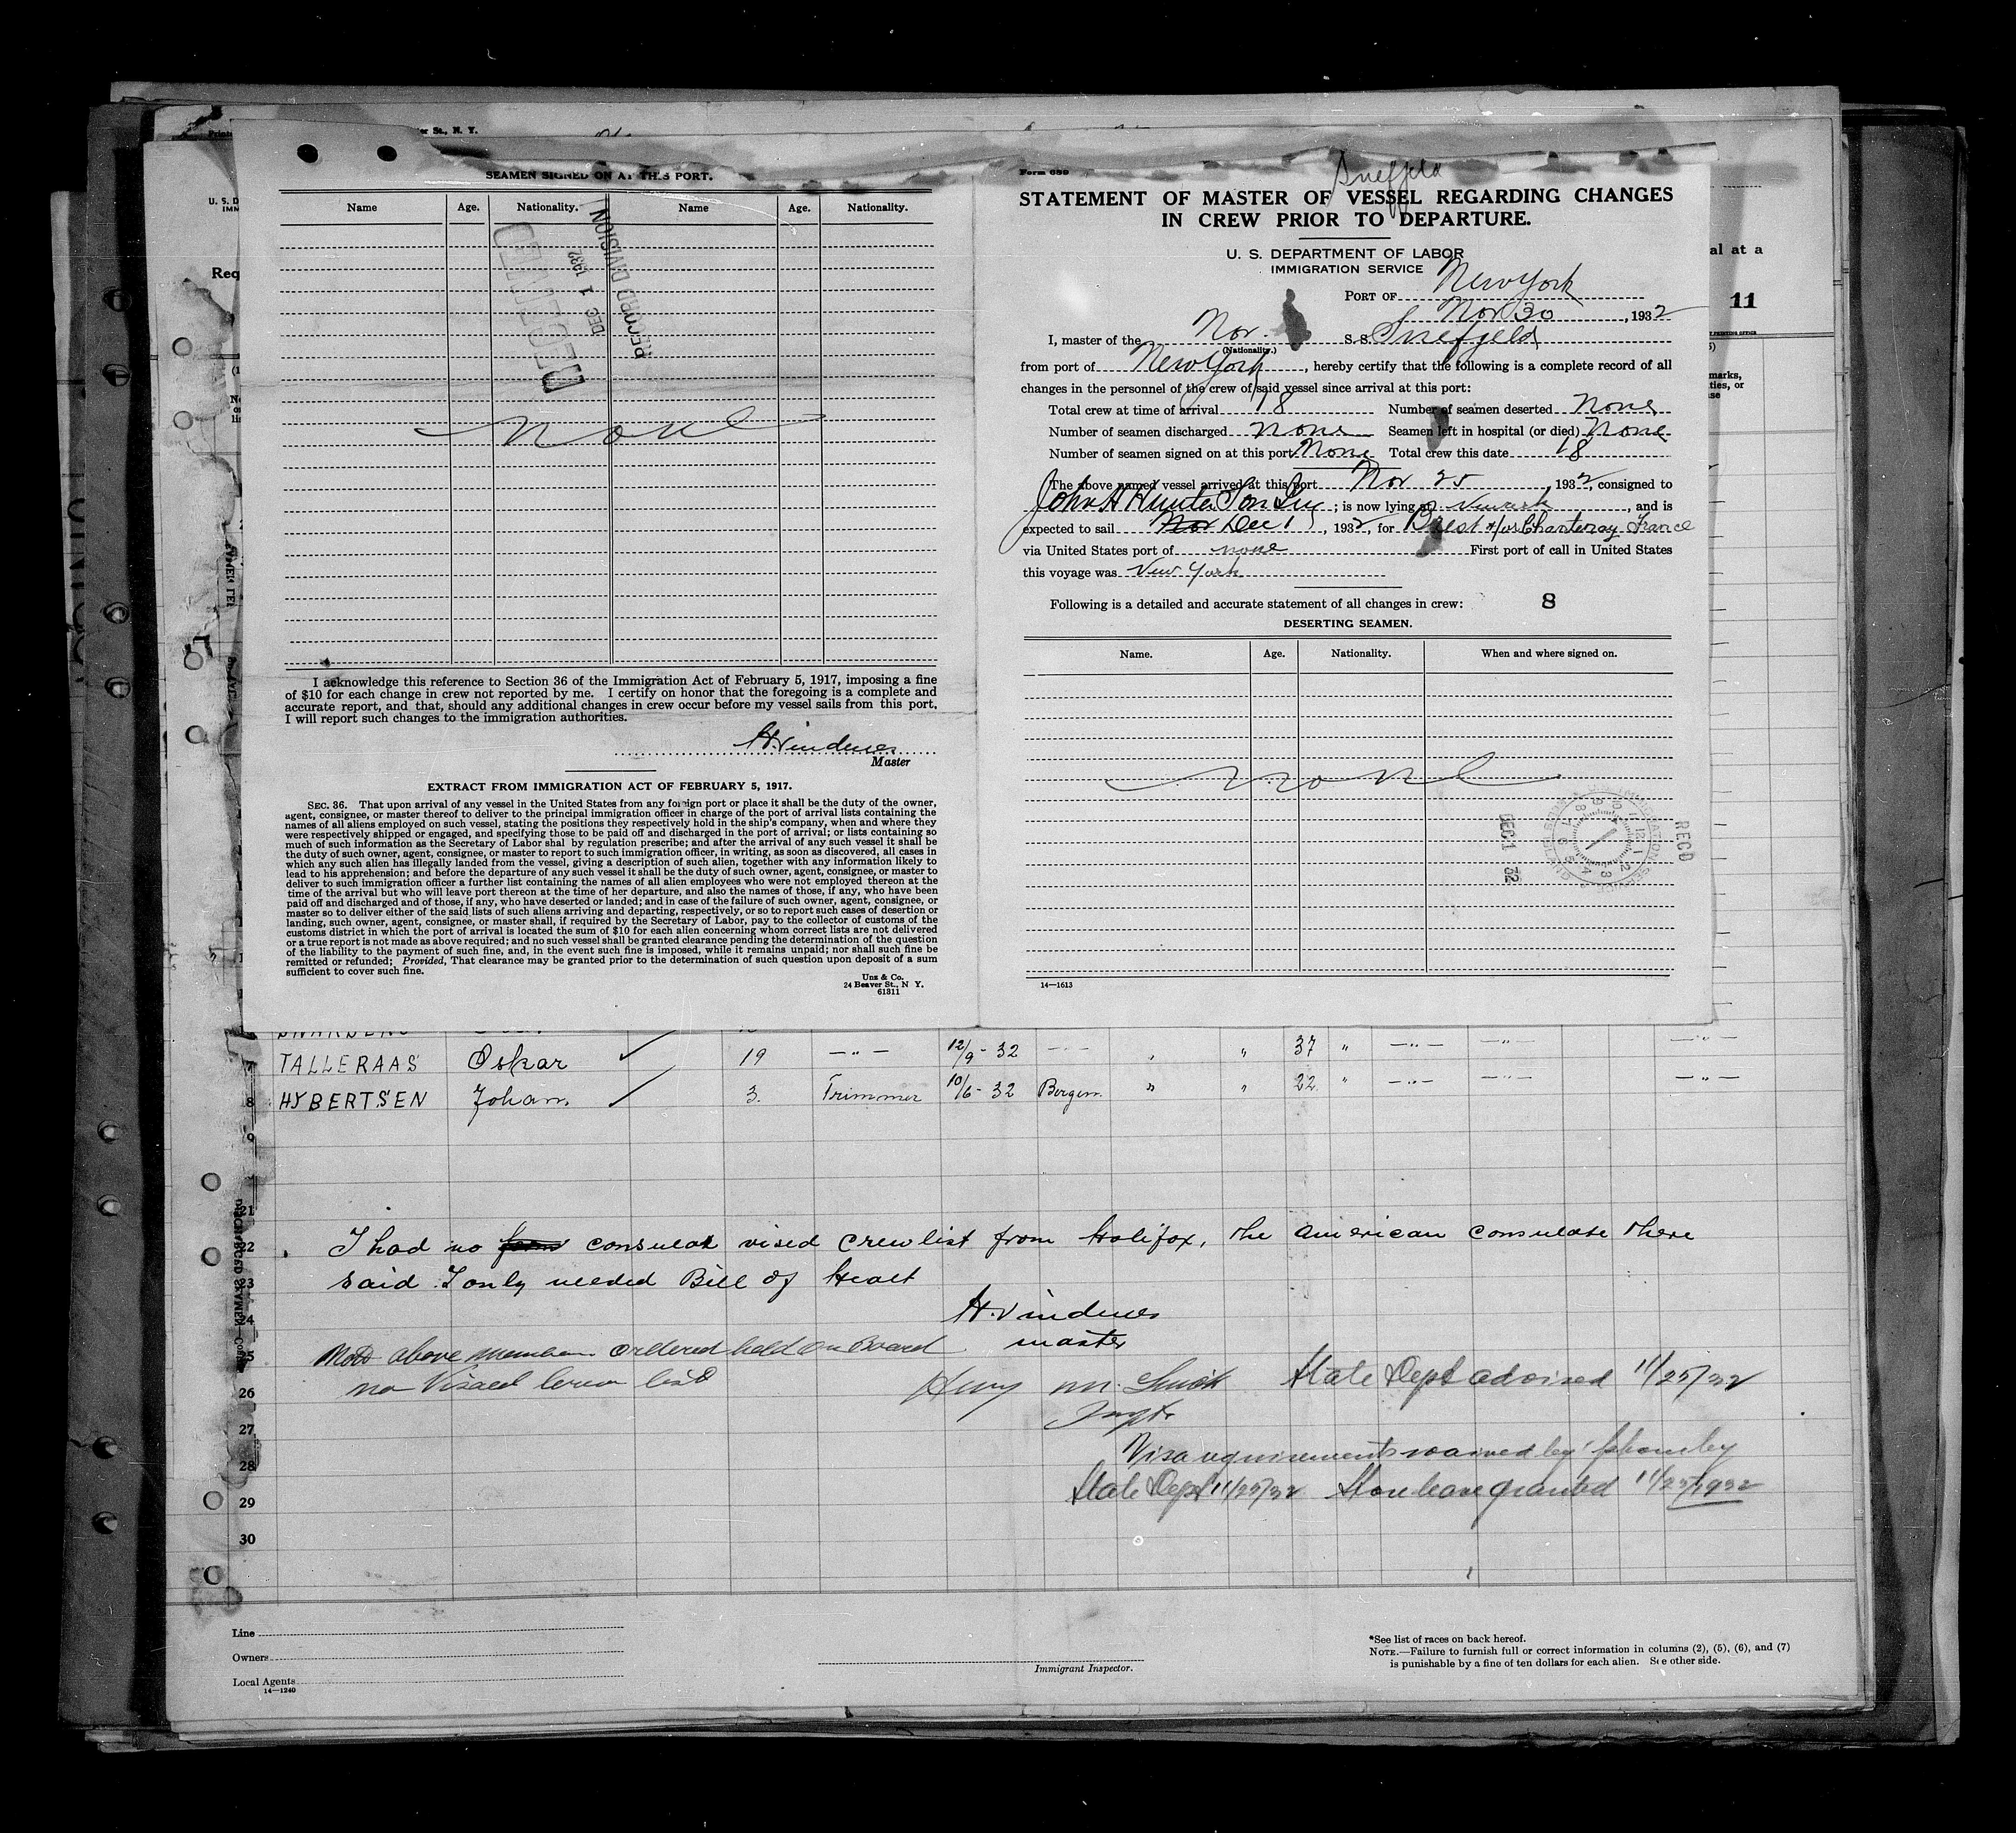 er St., N. Y.
SEAMEN SIGNED ON AT THIS PORT.
Name Age. Nationality. Name Age. Nationality.
RECEIVED
DEC 1 1932
RECORD DIVISION
None
I acknowledge this reference to Section 36 of the Immigration Act of February 5, 1917, imposing a fine
of $10 for each change in crew not reported by me. I certify on honor that the foregoing is a complete and
accurate report, and that, should any additional changes in crew occur before my vessel sails from this port,
I will report such changes to the immigration authorities.
H. Vindenes
Master
EXTRACT FROM IMMIGRATION ACT OF FEBRUARY 5, 1917.
SEC. 36. That upon arrival of any vessel in the United States from any foreign port or place it shall be the duty of the owner,
agent, consignee, or master thereof to deliver to the principal immigration officer in charge of the port of arrival lists containing the
names of all aliens employed on such vessel, stating the positions they respectively hold in the ship's company, when and where they
were respectively shipped or engaged, and specifying those to be paid off and discharged in the port of arrival; or lists containing so
much of such information as the Secretary of Labor shal by regulation prescribe; and after the arrival of any such vessel it shall be
the duty of such owner, agent, consignee, or master to report to such immigration officer, in writing, as soon as discovered, all cases in
which any such alien has illegally landed from the vessel, giving a description of such alien, together with any information likely to
lead to his apprehension; and before the departure of any such vessel it shall be the duty of such owner, agent, consignee, or master to
deliver to such immigration officer a further list containing the names of all alien employees who were not employed thereon at the
time of the arrival but who will leave port thereon at the time of her departure, and also the names of those, if any, who have been
paid off and discharged and of those, if any, who have deserted or landed; and in case of the failure of such owner, agent, consignee, or
master so to deliver either of the said lists of such aliens arriving and departing, respectively, or so to report such cases of desertion or
landing, such owner, agent, consignee, or master shall, if required by the Secretary of Labor, pay to the collector of customs of the
customs district in which the port of arrival is located the sum of $10 for each alien concerning whom correct lists are not delivered
or a true report is not made as above required; and no such vessel shall be granted clearance pending the determination of the question
of the liability to the payment of such fine, and, in the event such fine is imposed, while it remains unpaid; nor shall such fine be
remitted or refunded; Provided, That clearance may be granted prior to the determination of such question upon deposit of a sum
sufficient to cover such fine.
Unz & Co.
24 Beaver St., N Y.
61311
Form 689
Snefjeld
STATEMENT OF MASTER OF VESSEL REGARDING CHANGES
IN CREW PRIOR TO DEPARTURE.
U. S. DEPARTMENT OF LABOR
IMMIGRATION SERVICE
PORT OF New York
Nov 30, 1932
I, master of the Nor. S. S. Snefjeld
(Nationality.)
from port of New York, hereby certify that the following is a complete record of all
changes in the personnel of the crew of said vessel since arrival at this port:
Total crew at time of arrival 18 Number of seamen deserted None
Number of seamen discharged None Seamen left in hospital (or died) None
Number of seamen signed on at this port None Total crew this date 18
The above named vessel arrived at this port Nov 25, 1932, consigned to
John H Hunter Son Inc; is now lying at Newark, and is
expected to sail Nov Dec 1, 1932, for Brest &/or Chantenay France
via United States port of none First port of call in United States
this voyage was New York
Following is a detailed and accurate statement of all changes in crew: 8
DESERTING SEAMEN.
Name. Age. Nationality. When and where signed on.
None
RECD
DEC 1 32
14—1613
al at a
11
marks,
ties, or
TALLERAAS Oskar 19 —"— 12/9-32 37 " —"— —"— —"—
8 HYBERTSEN Johan. 3. Trimmer 10/6-32 Bergen. " " 22 " —"— —"— —"—
21
22 I had no consular vised crewlist from Halifax, the american consulate there
23 said I only needed Bill of Healt
24 H. Vindenes
master
above members ordered held on Board
no Visaed Crew list
26 Henry M. Smith State Dept advised 11/25/32
Inspt.
27
28 Visa requirements waived by
State Dept 11/25/32 Shore leave granted 11/25/1932
29
30
Line
Owners
Local Agents
14—1240
Immigrant Inspector.
*See list of races on back hereof.
NOTE.—Failure to furnish full or correct information in columns (2), (5), (6), and (7)
is punishable by a fine of ten dollars for each alien. See other side.